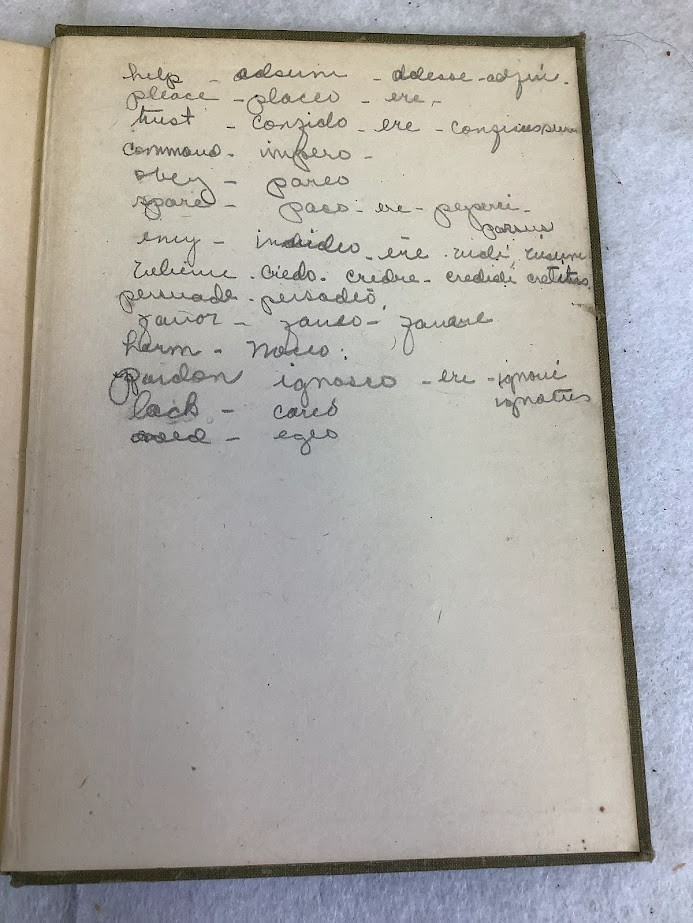 help - adsum - adesse - adfui.
please - placeo - ere -
trust - confido - ere - confisus sum
command - impero -
obey - pareo
spare - paco - ere - peperci -
parsus
envy - invideo - ere - vidi, visum
believe - credo - credre - credidi creditus
persuade - persadeo,
favor - faveo - favere
harm - noceo.
pardon ignosco - ere - ignovi
ignotus
lack - careo
need - egeo